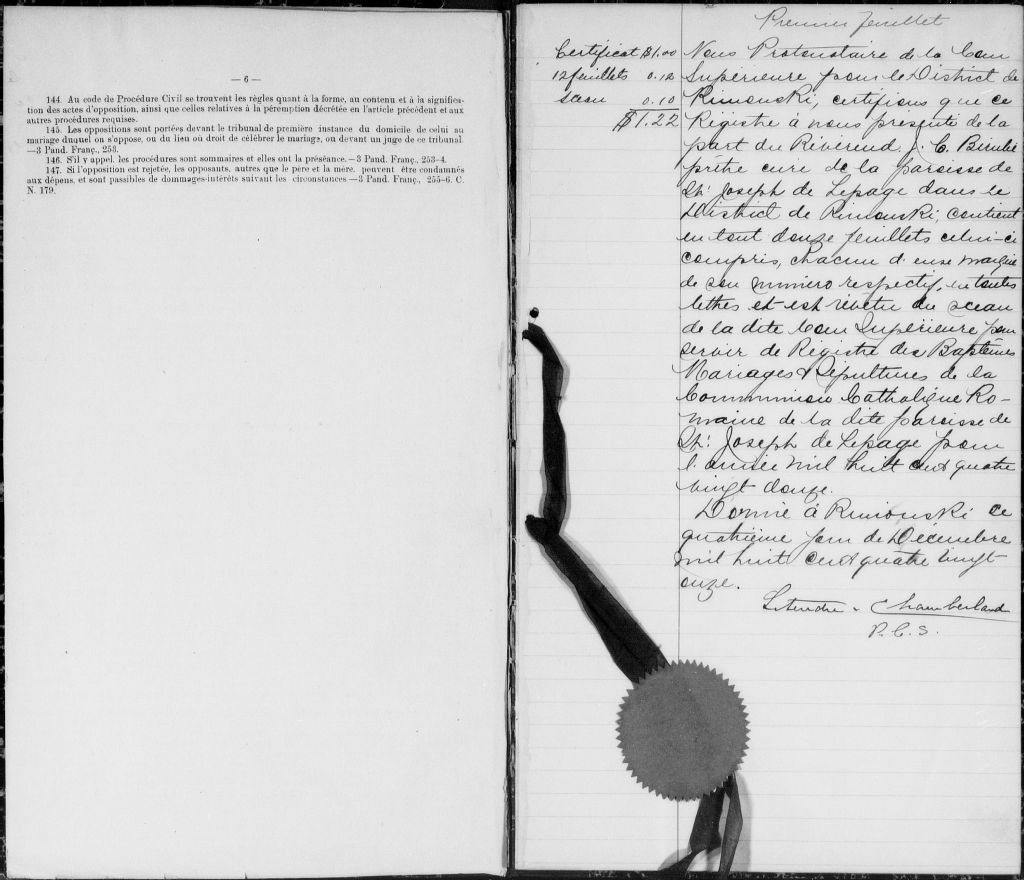 — 6 —
144. Au code de Procédure Civil se trouvent les règles quant à la forme, au contenu et à la significa-
tion des actes d'opposition, ainsi que celles relatives à la péremption décrétée en l'article précédent et aux
autres procédures requises.
145. Les oppositions sont portées devant le tribunal de première instance du domicile de celui au
mariage duquel on s'oppose, ou du lieu où droit de célébrer le mariage, ou devant un juge de ce tribunal.
—3 Pand. Franç., 253.
146. S'il y appel, les procédures sont sommaires et elles ont la préséance.—3 Pand. Franç., 253-4.
147. Si l'opposition est rejetée, les opposants, autres que le père et la mère, peuvent être condamnés
aux dépens, et sont passibles de dommages-intérêts suivant les circonstances—3 Pand. Franç., 255-6. C.
N. 179.
Premier feuillet
Certificat $1.00
12 feuillets 0.12
Sceau 0.10
$1.22
Nous Protonotaire de la Cour
Supérieure pour le District de
Rimouski, certifions que ce
Régistre à nous présenté de la
part du Révérend J. C.
prêtre curé de la paroisse de
St. Joseph de Lepage dans le
District de Rimouski, contient
en tout douze feuillets celui-ci
compris, chacun d'eux marqué
de son numéro respectif, en toutes
lettres et est revêtu du sceau
de la dite Cour Supérieure pour
servir de Régistre des Baptêmes
Mariages & Sépultures de la
Communion Catholique Ro-
maine de la dite paroisse de
St. Joseph de Lepage pour
l'année mil huit cent quatre
vingt douze.
Donné à Rimouski ce
quatrième jour de Décembre
mil huit cent quatre vingt
onze.
Letendre & Chamberland
P. C. S.